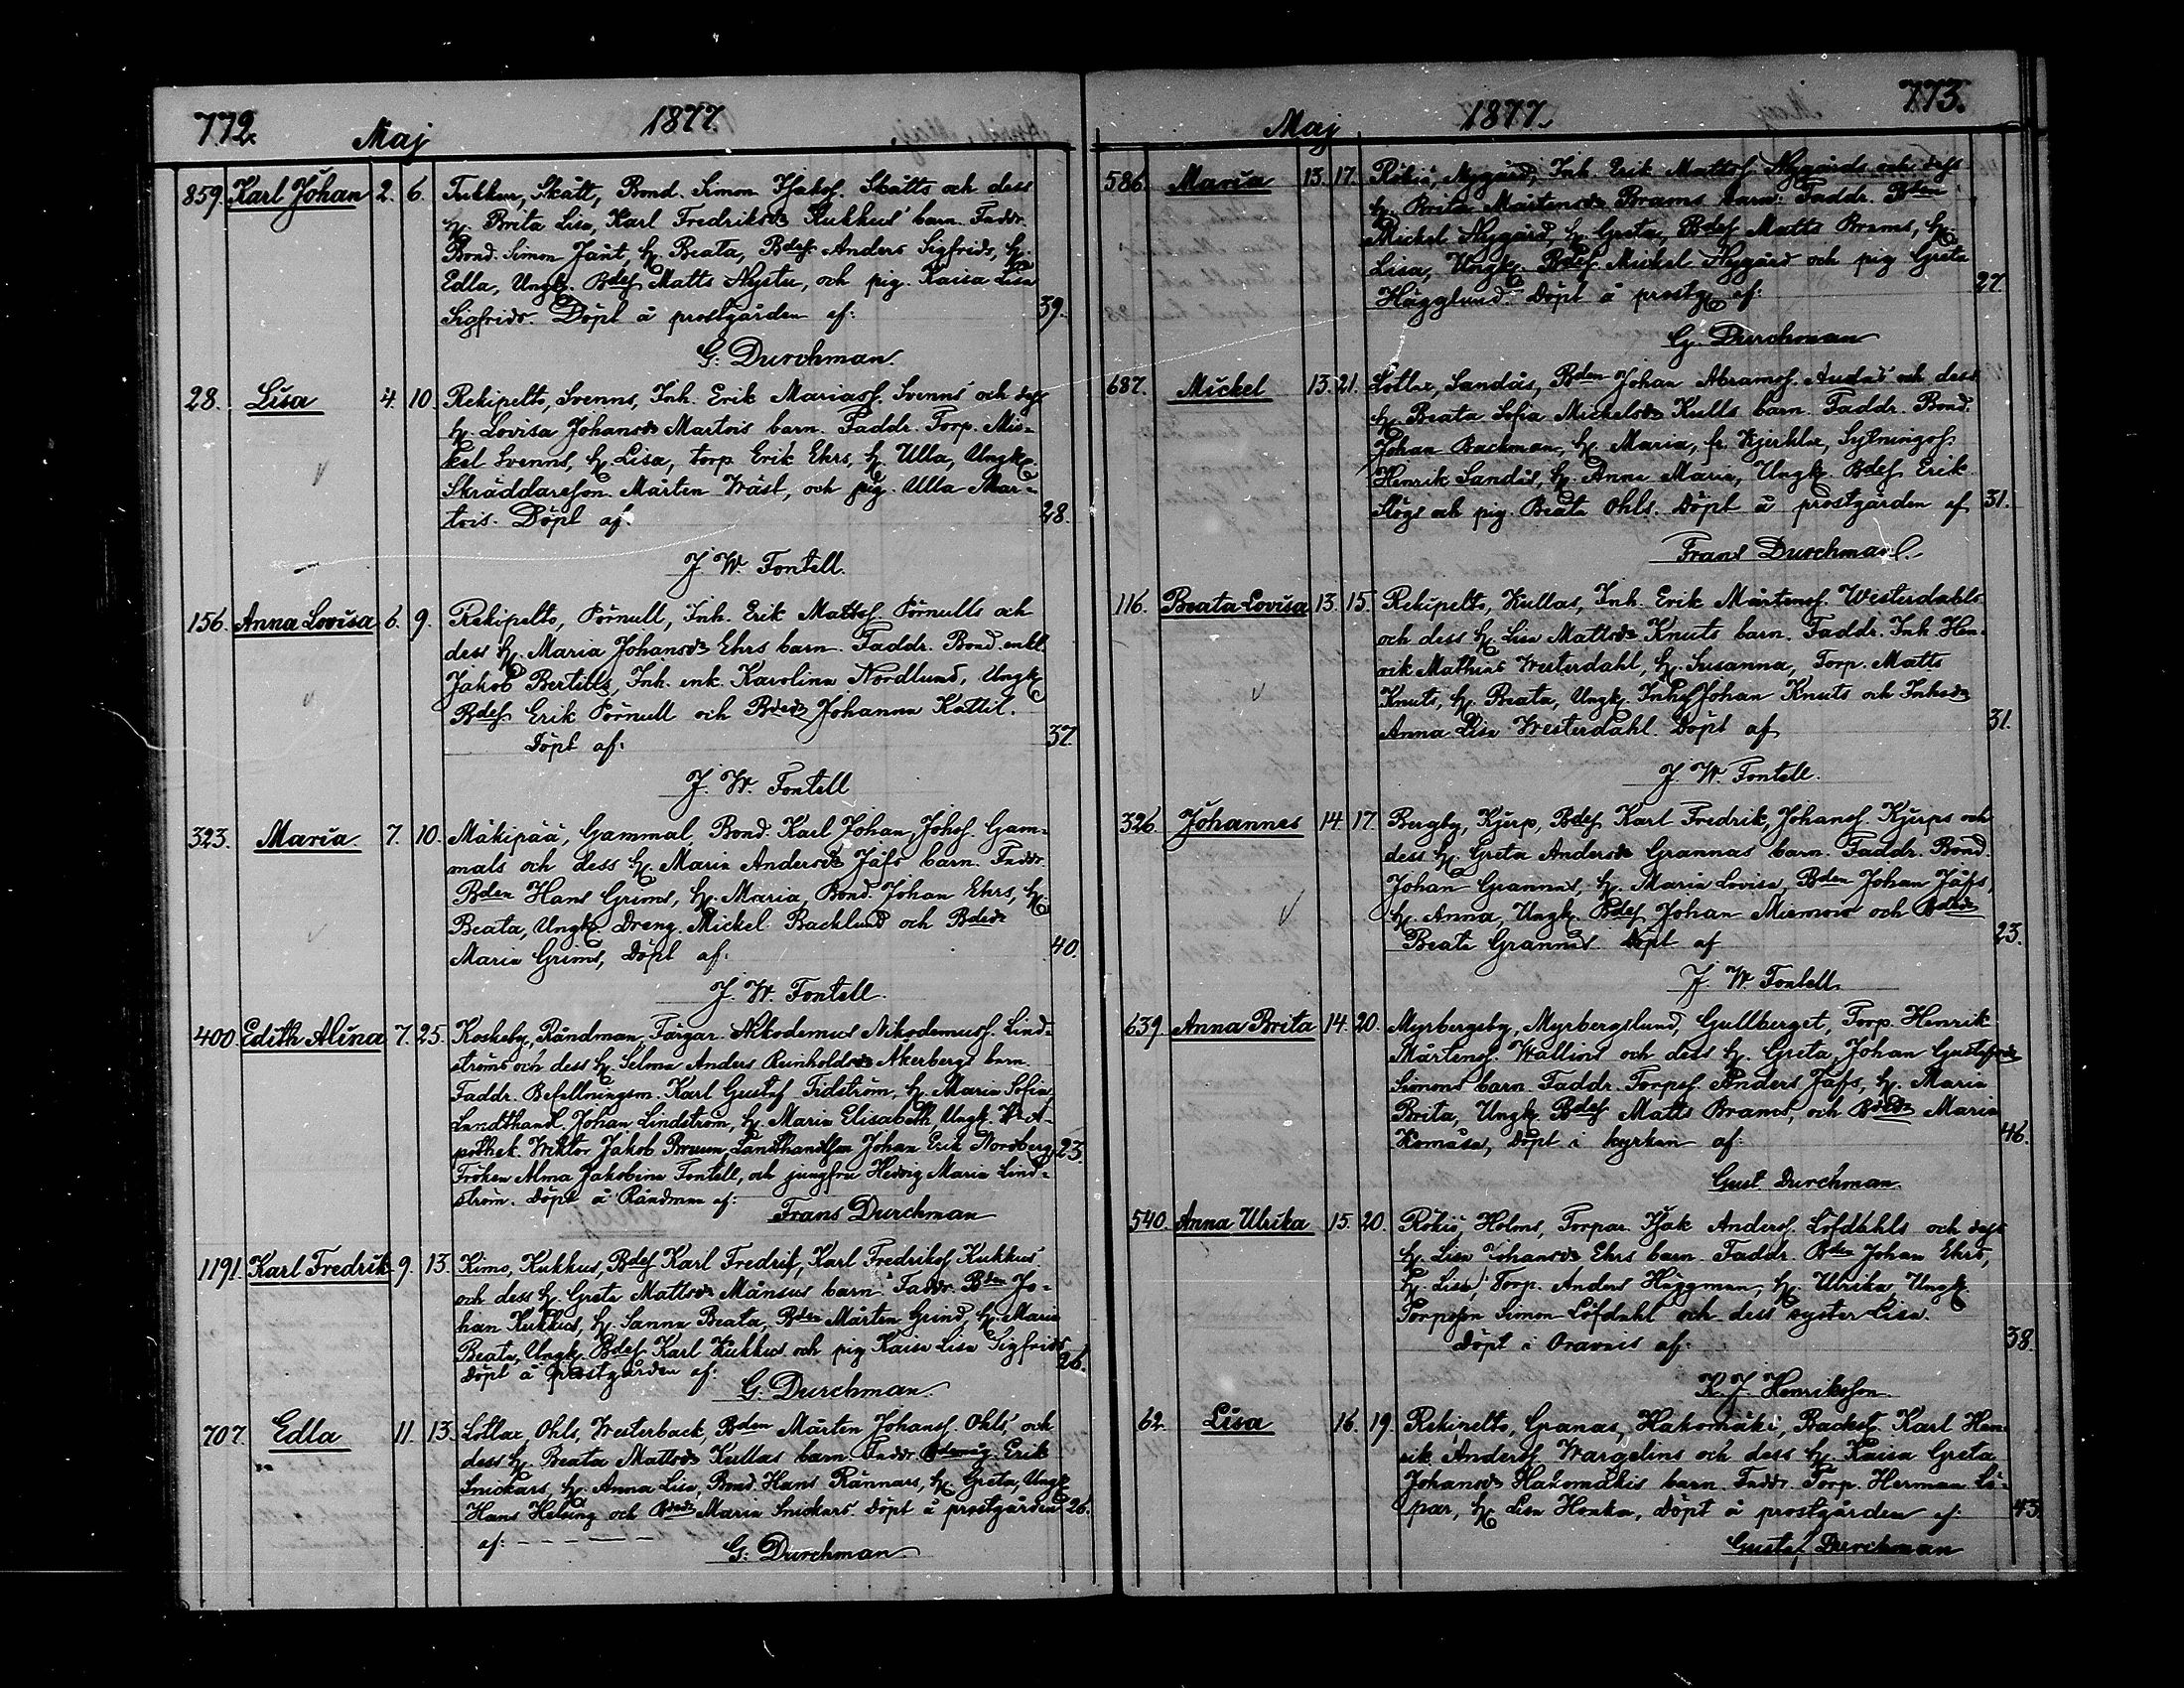 772.
Maj
1877
859. Karl Johan 2. 6. Tukkur, Skätt, Bond. Simon Isakss. Skätts och dess
H. Brita Lisa, Karl Fredriksdr Kukkus' barn. Faddr.
Bond. Simon Jänt, H. Beata, Bdess. Anders Sigfrids, H.
Edla, Ungk. Bdess Matts Nystu, och pig. Kaisa Lisa
Sigfrids. Döpt å prostgården af: 39.
G: Durchman.
28. Lisa 4. 10 Rekipelto, Svenns, Inh. Erik Mariass. Svenns' och dess
H. Lovisa Johansdr Martois barn. Faddr. Torp. Mic-
kel Svenns, H. Lisa, torp. Erik Ehrs, H. Ulla, Ungk.
Skräddareson Mårten Wäst, och pig. Ulla Mar-
tois. Döpt af. 28.
J. W. Fontell.
156. Anna Lovisa 6. 9. Rekipelto, Pörnull, Inh. Erik Mattss. Pörnulls och
dess H. Maria Johansdr Ehrs barn. Faddr. Bond. enkl.
Jakob Bertills, Inh. enk. Karolina Nordlund, Ungk.
Bdess. Erik Pörnull och Bdedr Johanna Kattil.
Döpt af: 37.
J. W. Fontell
323. Maria 7. 10. Mäkipää, Gammal, Bond. Karl Johan, Johss. Gam-
mals och dess H. Maria Andersdr Jäfs barn. Faddr.
Bden Hans Grims, H. Maria, Bond. Johan Ehrs, H.
Beata, Ungk. Dreng. Mickel Backlund och Bdedr
Maria Grims, Döpt af: 40.
J. W. Fontell.
400 Edith Alina 7. 25. Koskeby, Råndman, Färgar. Nikodemus Nikodemuss. Lind-
ströms och dess H. Selma Anders Reinholdsdr Åkerbergs barn.
Faddr. Befallningsm. Karl Gustaf Tidström, H. Maria Sofia,
Landthandl. Johan Lindström, H. Maria Elisabeth, Ungk. A-
pothek. Wiktor Jakob Bruun, Landthandlsen Johan Erik Nordberg, 23.
Fröken Alma Jakobina Fontell, och jungfru Hedvig Maria Lind-
ström. Döpt å Råndman af: Frans Durchman
1191. Karl Fredrik 9. 13. Kimo, Kukkus, Bdess Karl Fredrik, Karl Fredrikss. Kukkus'
och dess H. Greta Mattsdr Månsus barn. Faddr. Bden Jo-
han Kukkus, H. Sanna Beata, Bden Mårten Grind, H. Maria
Beata, Ungk. Bdess Karl Kukkus och pig Kaisa Lisa Sigfrids
Döpt å prostgården af: 26.
G. Durchman.
707. Edla 11. 13. Lotlax, Ohls, Westerback, Bden Mårten Johanss. Ohls', och
dess H. Beata Mattsdr Kullas barn. Faddr. Erik
Snickars, H. Anna Lisa, Bond. Hans Rännars, H. Greta, Ungk
Hans Helsing och Bdedr Maria Snickars. Döpt å prostgården 26.
af: - - - - -
G: Durchman
773.
Maj
1877.
586. Maria 13. 17. Rökiö, Nygård, Inh. Erik Mattss. Nygårds och dess
H. Brita Mårtensdr Brams barn. Faddr. Bden
Mickel Nygård, H. Greta, Bdess Matts Brams, H.
Lisa, Ungk. Bdess Mickel Nygård och pig Greta
Hägglund. Döpt å prostg af: 27.
G. Durchman
687. Mickel 13. 21. Lotlax, Sandås, Bden Johan Abramss. Andås' och dess
H. Beata Sofia Mickelsdr Kulls barn. Faddr. Bond.
Johan Backman, H. Maria, fr. Kjerklax, Sytningss.
Henrik Sandås, H. Anna Maria, Ungk. Bdess Erik
Slögs och pig. Beata Ohls. Döpt å prostgården af 31.
Frans Durchman.
116. Beata Lovisa 13. 15. Rekipelto, Kullas, Inh. Erik Mårtenss. Westerdahls
och dess H. Lisa Mattsdr Knuts barn. Faddr. Inh. Hen-
rik Mathias Westerdahl, H. Susanna, Torp. Matts
Knuts, H. Beata, Ungk. Inhss Johan Knuts och Inhsdr
Anna Lisa Westerdahl. Döpt af 31.
J. W. Fontell.
326. Johannes 14. 17 Bergby, Kjerp, Bdess Karl Fredrik, Johanss. Kjerps och
dess H. Greta Andersdr Grannas barn. Faddr. Bond.
Johan Grannas, H. Maria Lovisa, Bden Johan Jäfs,
H. Anna, Ungk. Bdess Johan Mirmois och Bdedr
Beata Grannas. Döpt af 23.
J. W. Fontell.
639. Anna Brita 14. 20. Myrbergsby, Myrbergslund, Gullberget, Torp. Henrik
Mårtenss. Wallins och dess H. Greta, Johan Gustafsdr
Simons barn. Faddr. Torpss. Anders Jäfs, H. Maria
Brita, Ungk. Bdess Matts Brams, och Bdedr Maria
Komåsa, Döpt i kyrkan af: 46.
Gust. Durchman.
540. Anna Ulrika 15. 20. Rökiö, Holms, Torpar. Isak Anderss. Löfdahls och dess
H. Lisa Johansdr Ehrs barn. Faddr. Bden Johan Ehrs,
H. Lisa, Torp. Anders Häggman, H. Ulrika, Ungk.
Torpsson Simon Löfdahl och dess syster Lisa.
Döpt i Oravais af: 38.
K. J. Henriksson.
62. Lisa 16. 19. Rekipelto, Granas, Hakomäki, Backst. Karl Hen-
rik Anderss Wargelins och dess H. Kaisa Greta
Johansdr Hakomäkis barn. Faddr. Torp. Herman Lö-
par, H. Lisa Honka, döpt å prostgården af: 43.
Gustaf Durchman